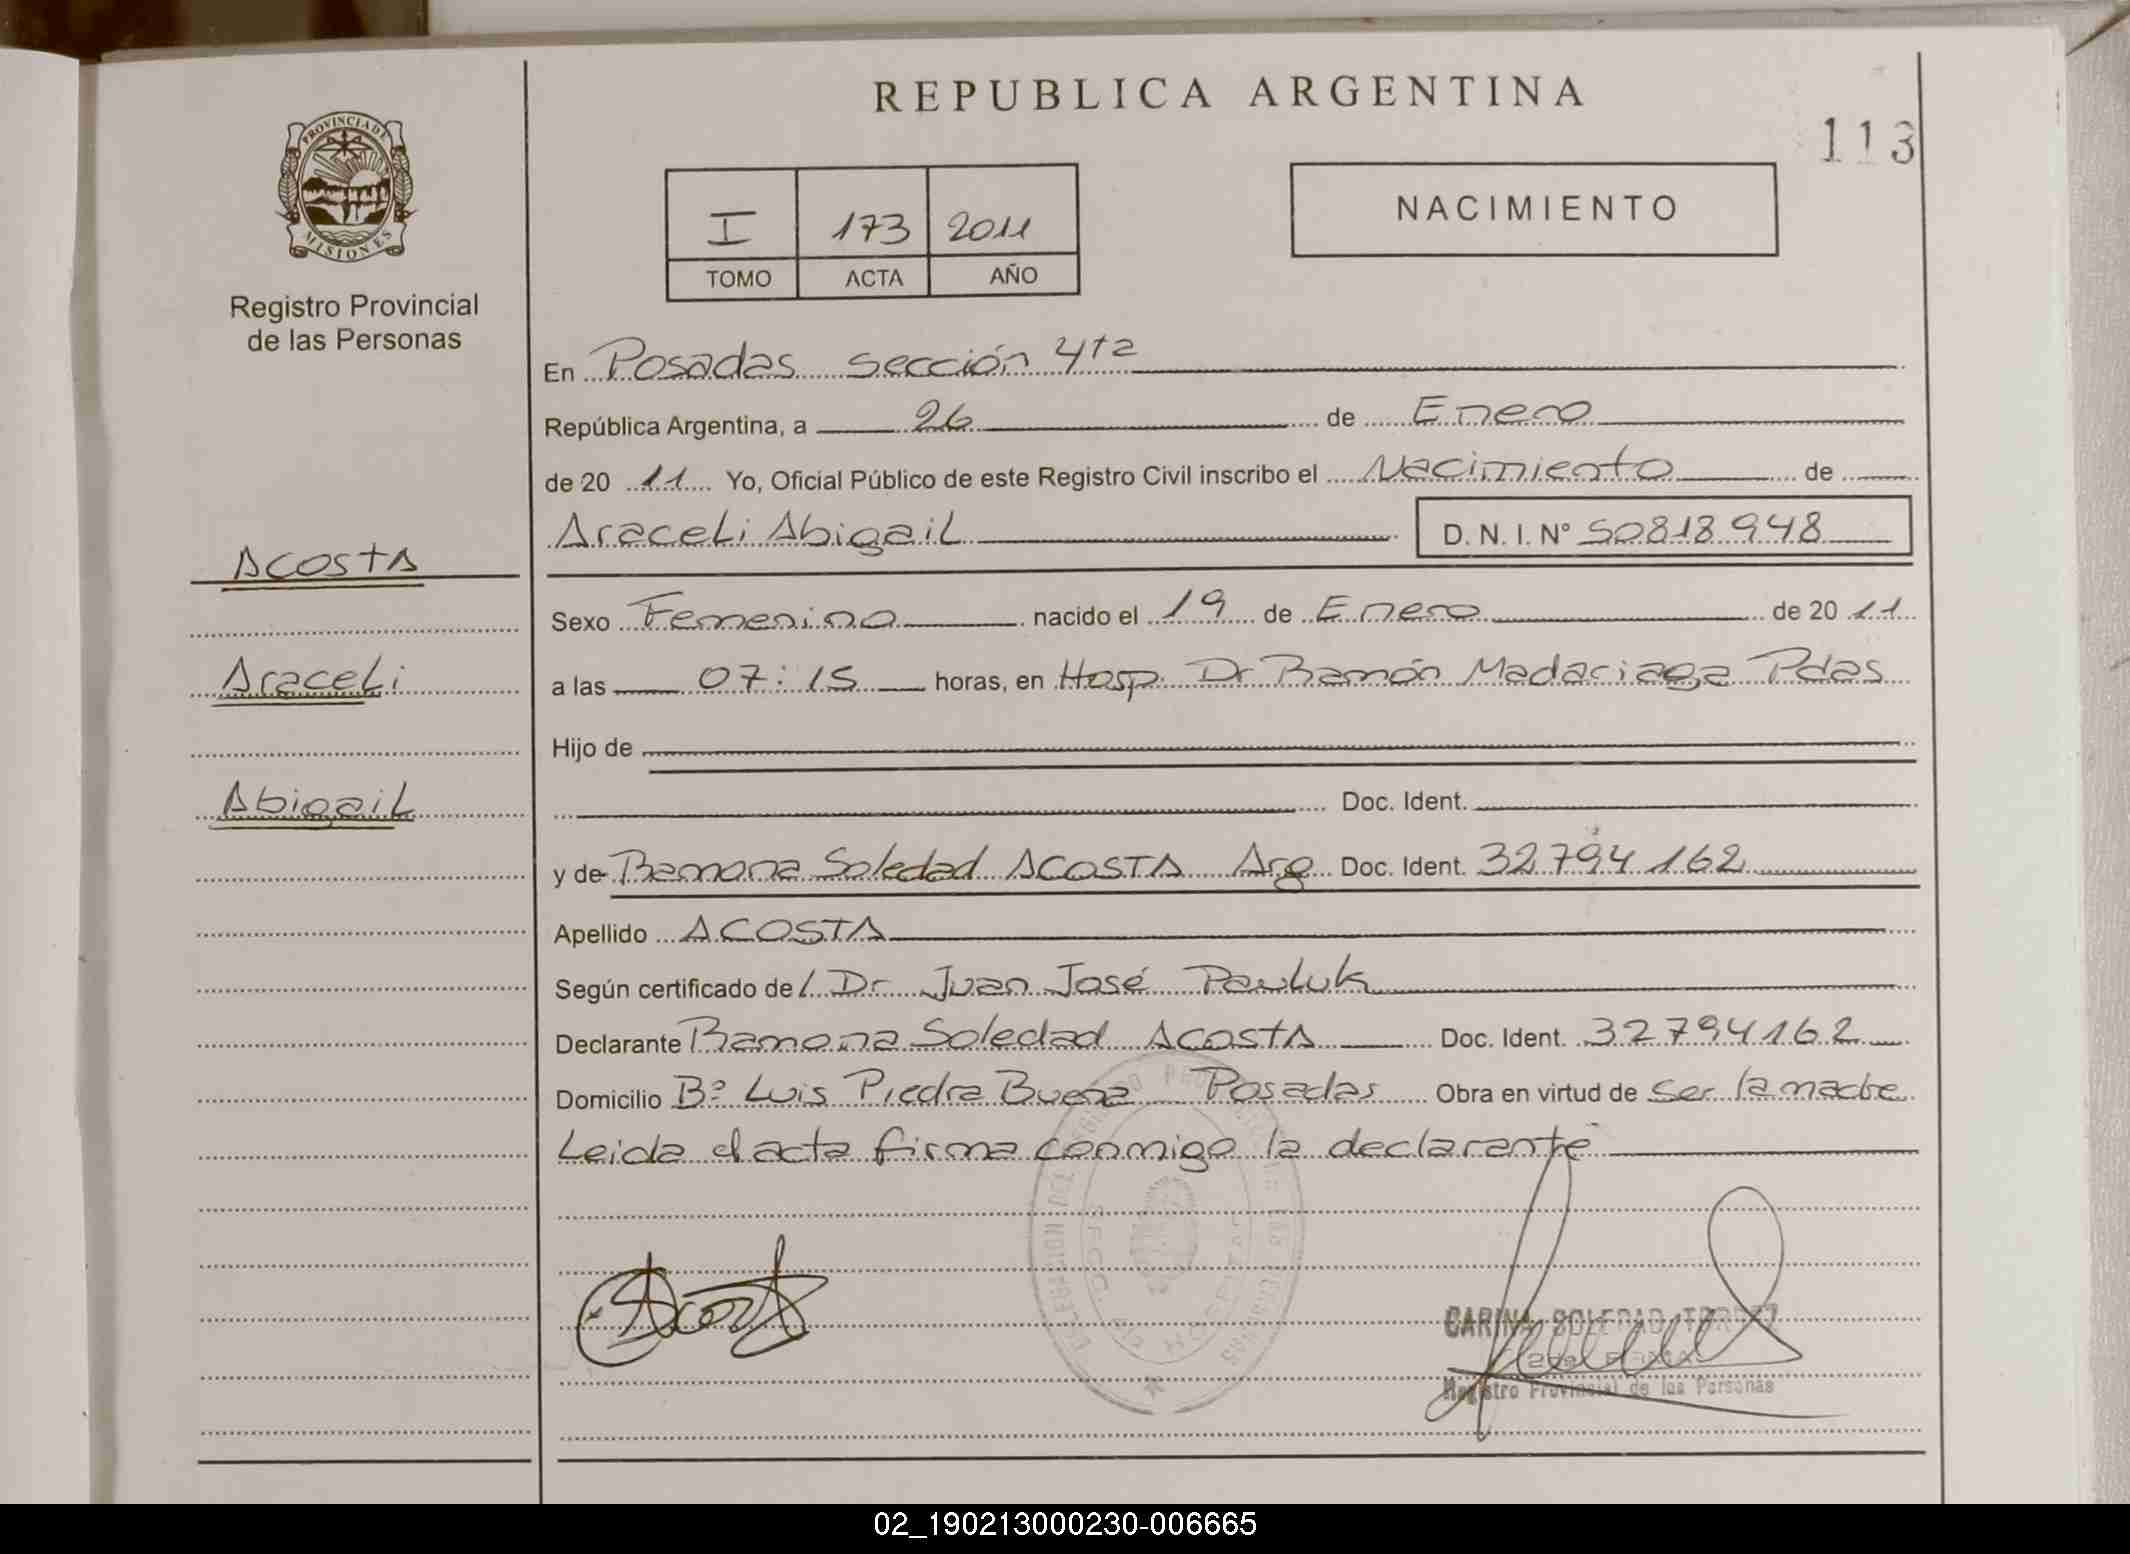 REPUBLICA ARGENTINA
113
PROVINCIA DE
MISIONES
Registro Provincial
de las Personas
I 173 2011
TOMO ACTA AÑO
NACIMIENTO
En Posadas sección 4ta
República Argentina, a 26 de Enero
de 20 11 Yo, Oficial Público de este Registro Civil inscribo el Nacimiento de
Araceli Abigail D. N. I. N° 50818948
ACOSTA
Araceli
Abigail
Sexo Femenino nacido el 19 de Enero de 20 11
a las 07:15 horas, en Hosp. Dr Ramón Madariaga Pdas
Hijo de
Doc. Ident.
y de Ramona Soledad ACOSTA Arg Doc. Ident. 32794162
Apellido ACOSTA
Según certificado de/ Dr Juan José Pauluk
Declarante Ramona Soledad ACOSTA Doc. Ident. 32794162
Domicilio Bº Luis Piedra Buena Posadas Obra en virtud de ser la madre
Leida el acta firma conmigo la declarante
Acosta
CARINA SOLEDAD
Registro Provincial de las Personas
02_190213000230-006665